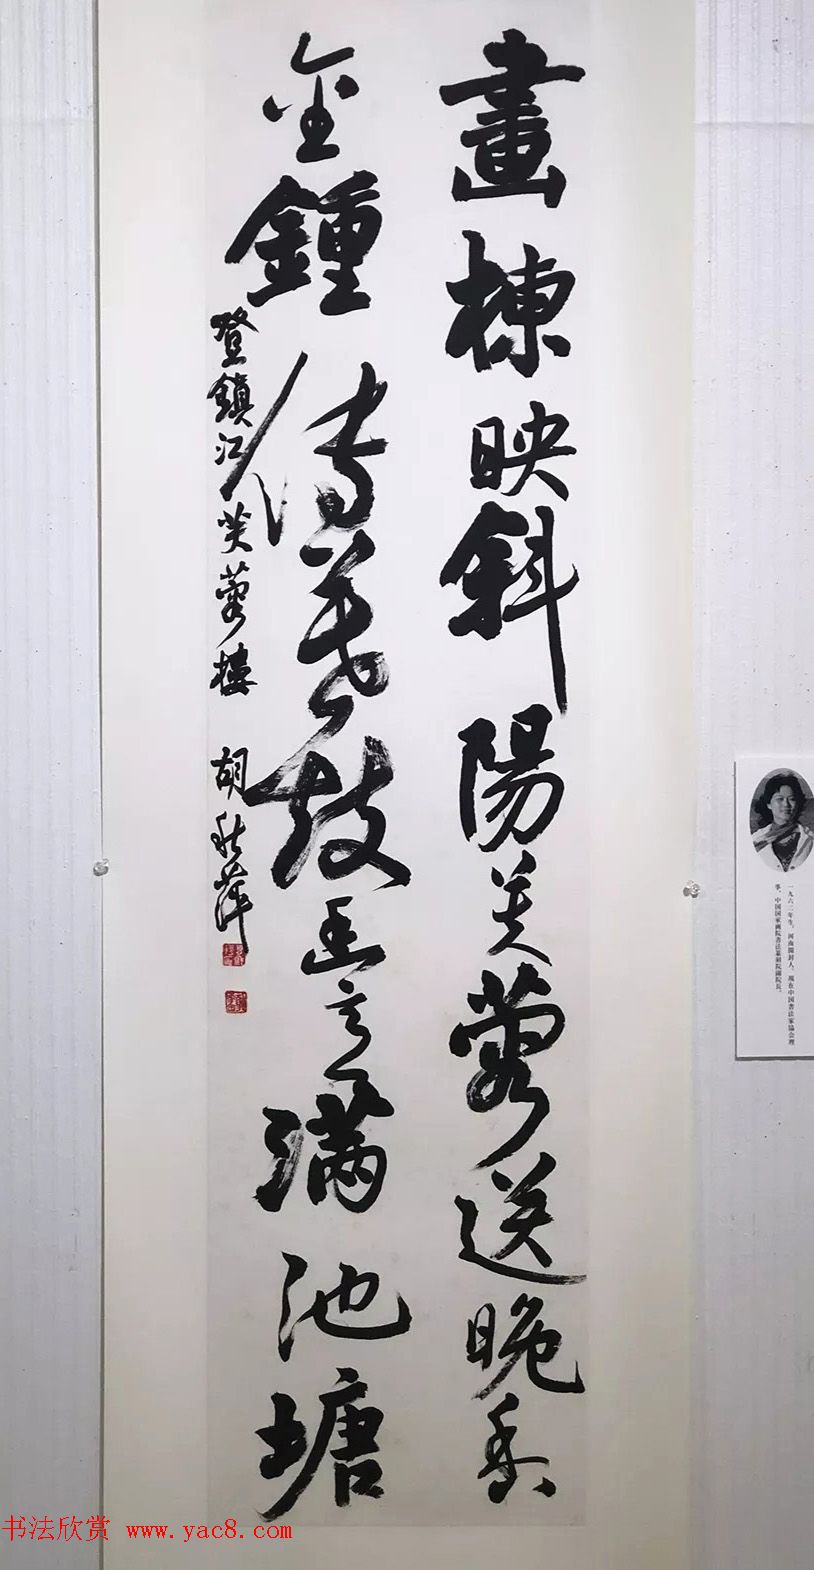 畫棟映斜陽芙蓉送晚香
金鍾傳暮鼓滿池塘
登鎮江芙蓉樓 胡秋萍
一九六二年生，河南開封人。現在中国書法家協会理
事、中国国家画院書法篆刻院副院長。
书法欣赏 www.yac8.com